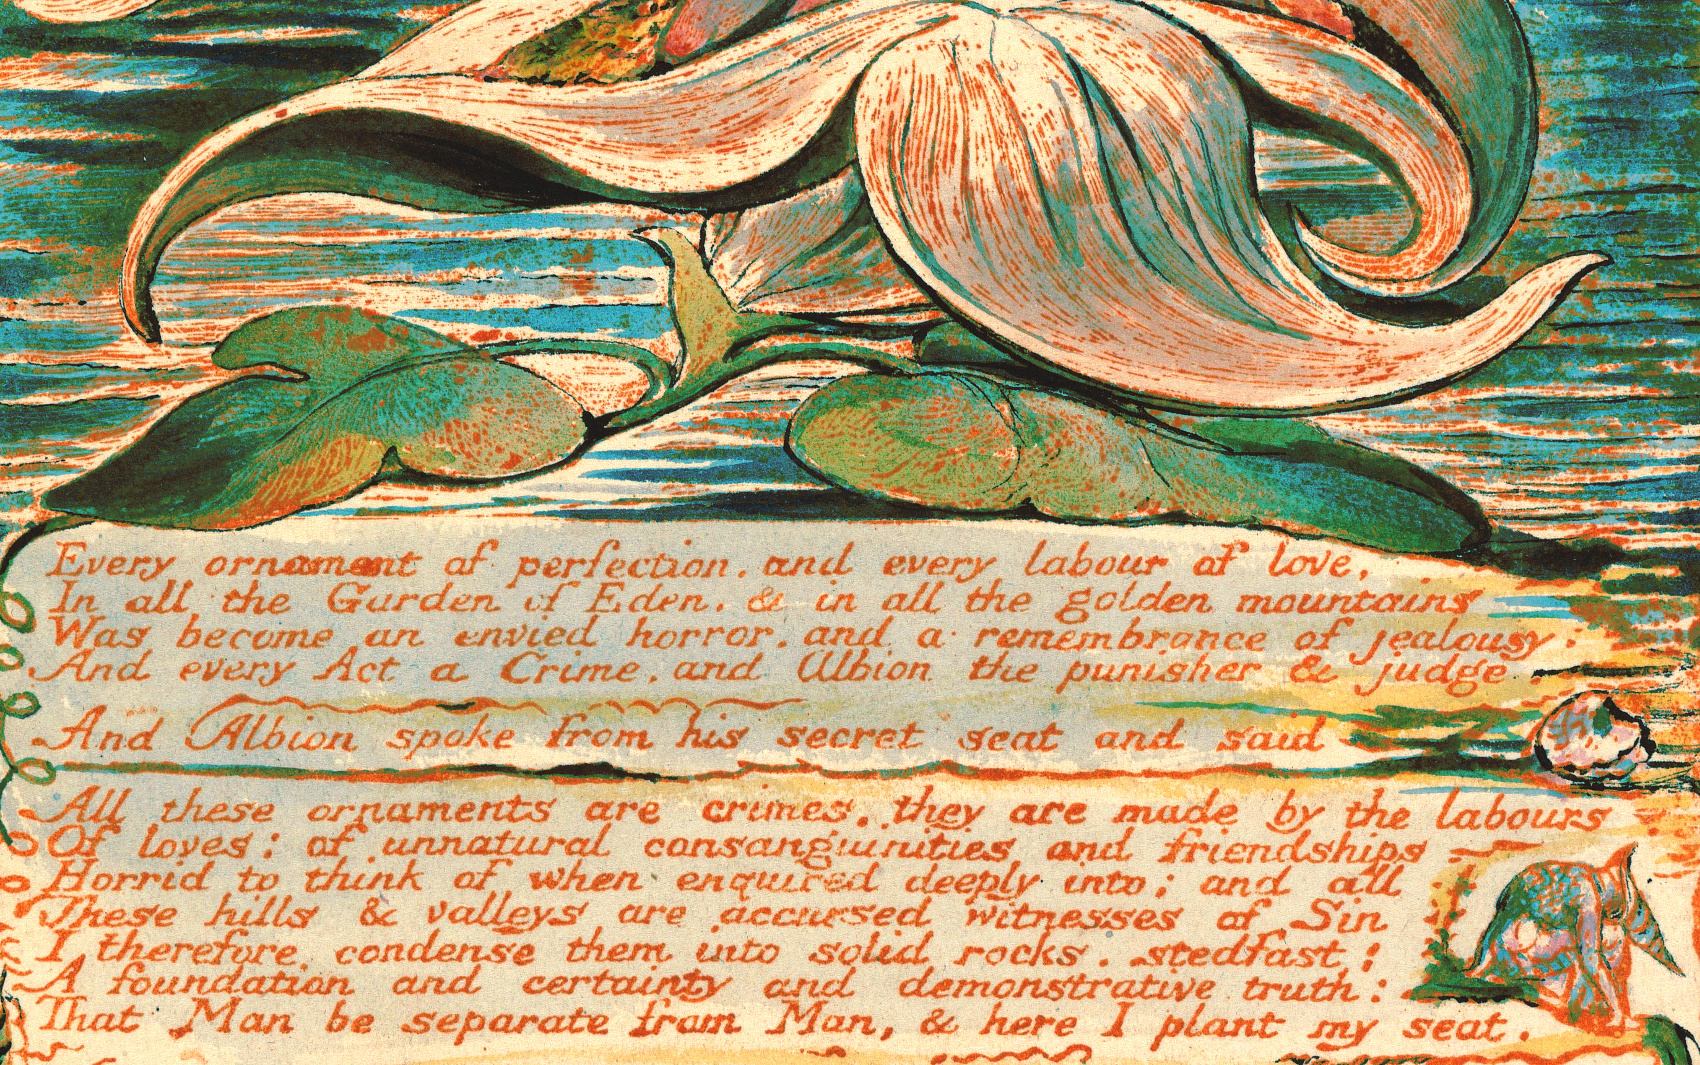 Every ornament of perfection, and every labour of love,
In all the Garden of Eden, & in all the golden mountains
Was become an envied horror, and a remembrance of jealousy:
And every Act a Crime, and Albion the punisher & judge
And Albion spoke from his secret seat and said
All these ornaments are crimes, they are made by the labours
Of loves: of unnatural consanguinities and friendships
Horrid to think of when enquired deeply into; and all
These hills & valleys are accursed witnesses of Sin
I therefore condense them into solid rocks, stedfast!
A foundation and certainty and demonstrative truth:
That Man be separate from Man, & here I plant my seat.